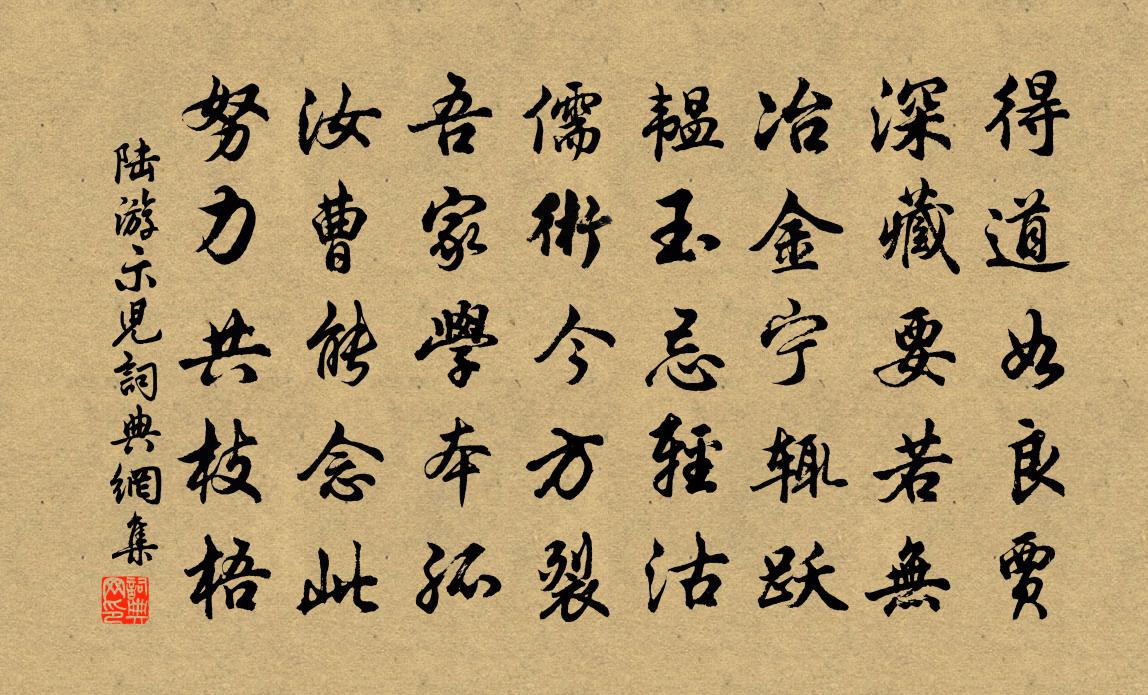 得道如良賈
深藏要若無
冶金宁辄跃
韞玉忌輕沽
儒術今方裂
吾家學本孤
汝曹能念此
努力共枝梧
陆游示児詞典網集
詞典网印